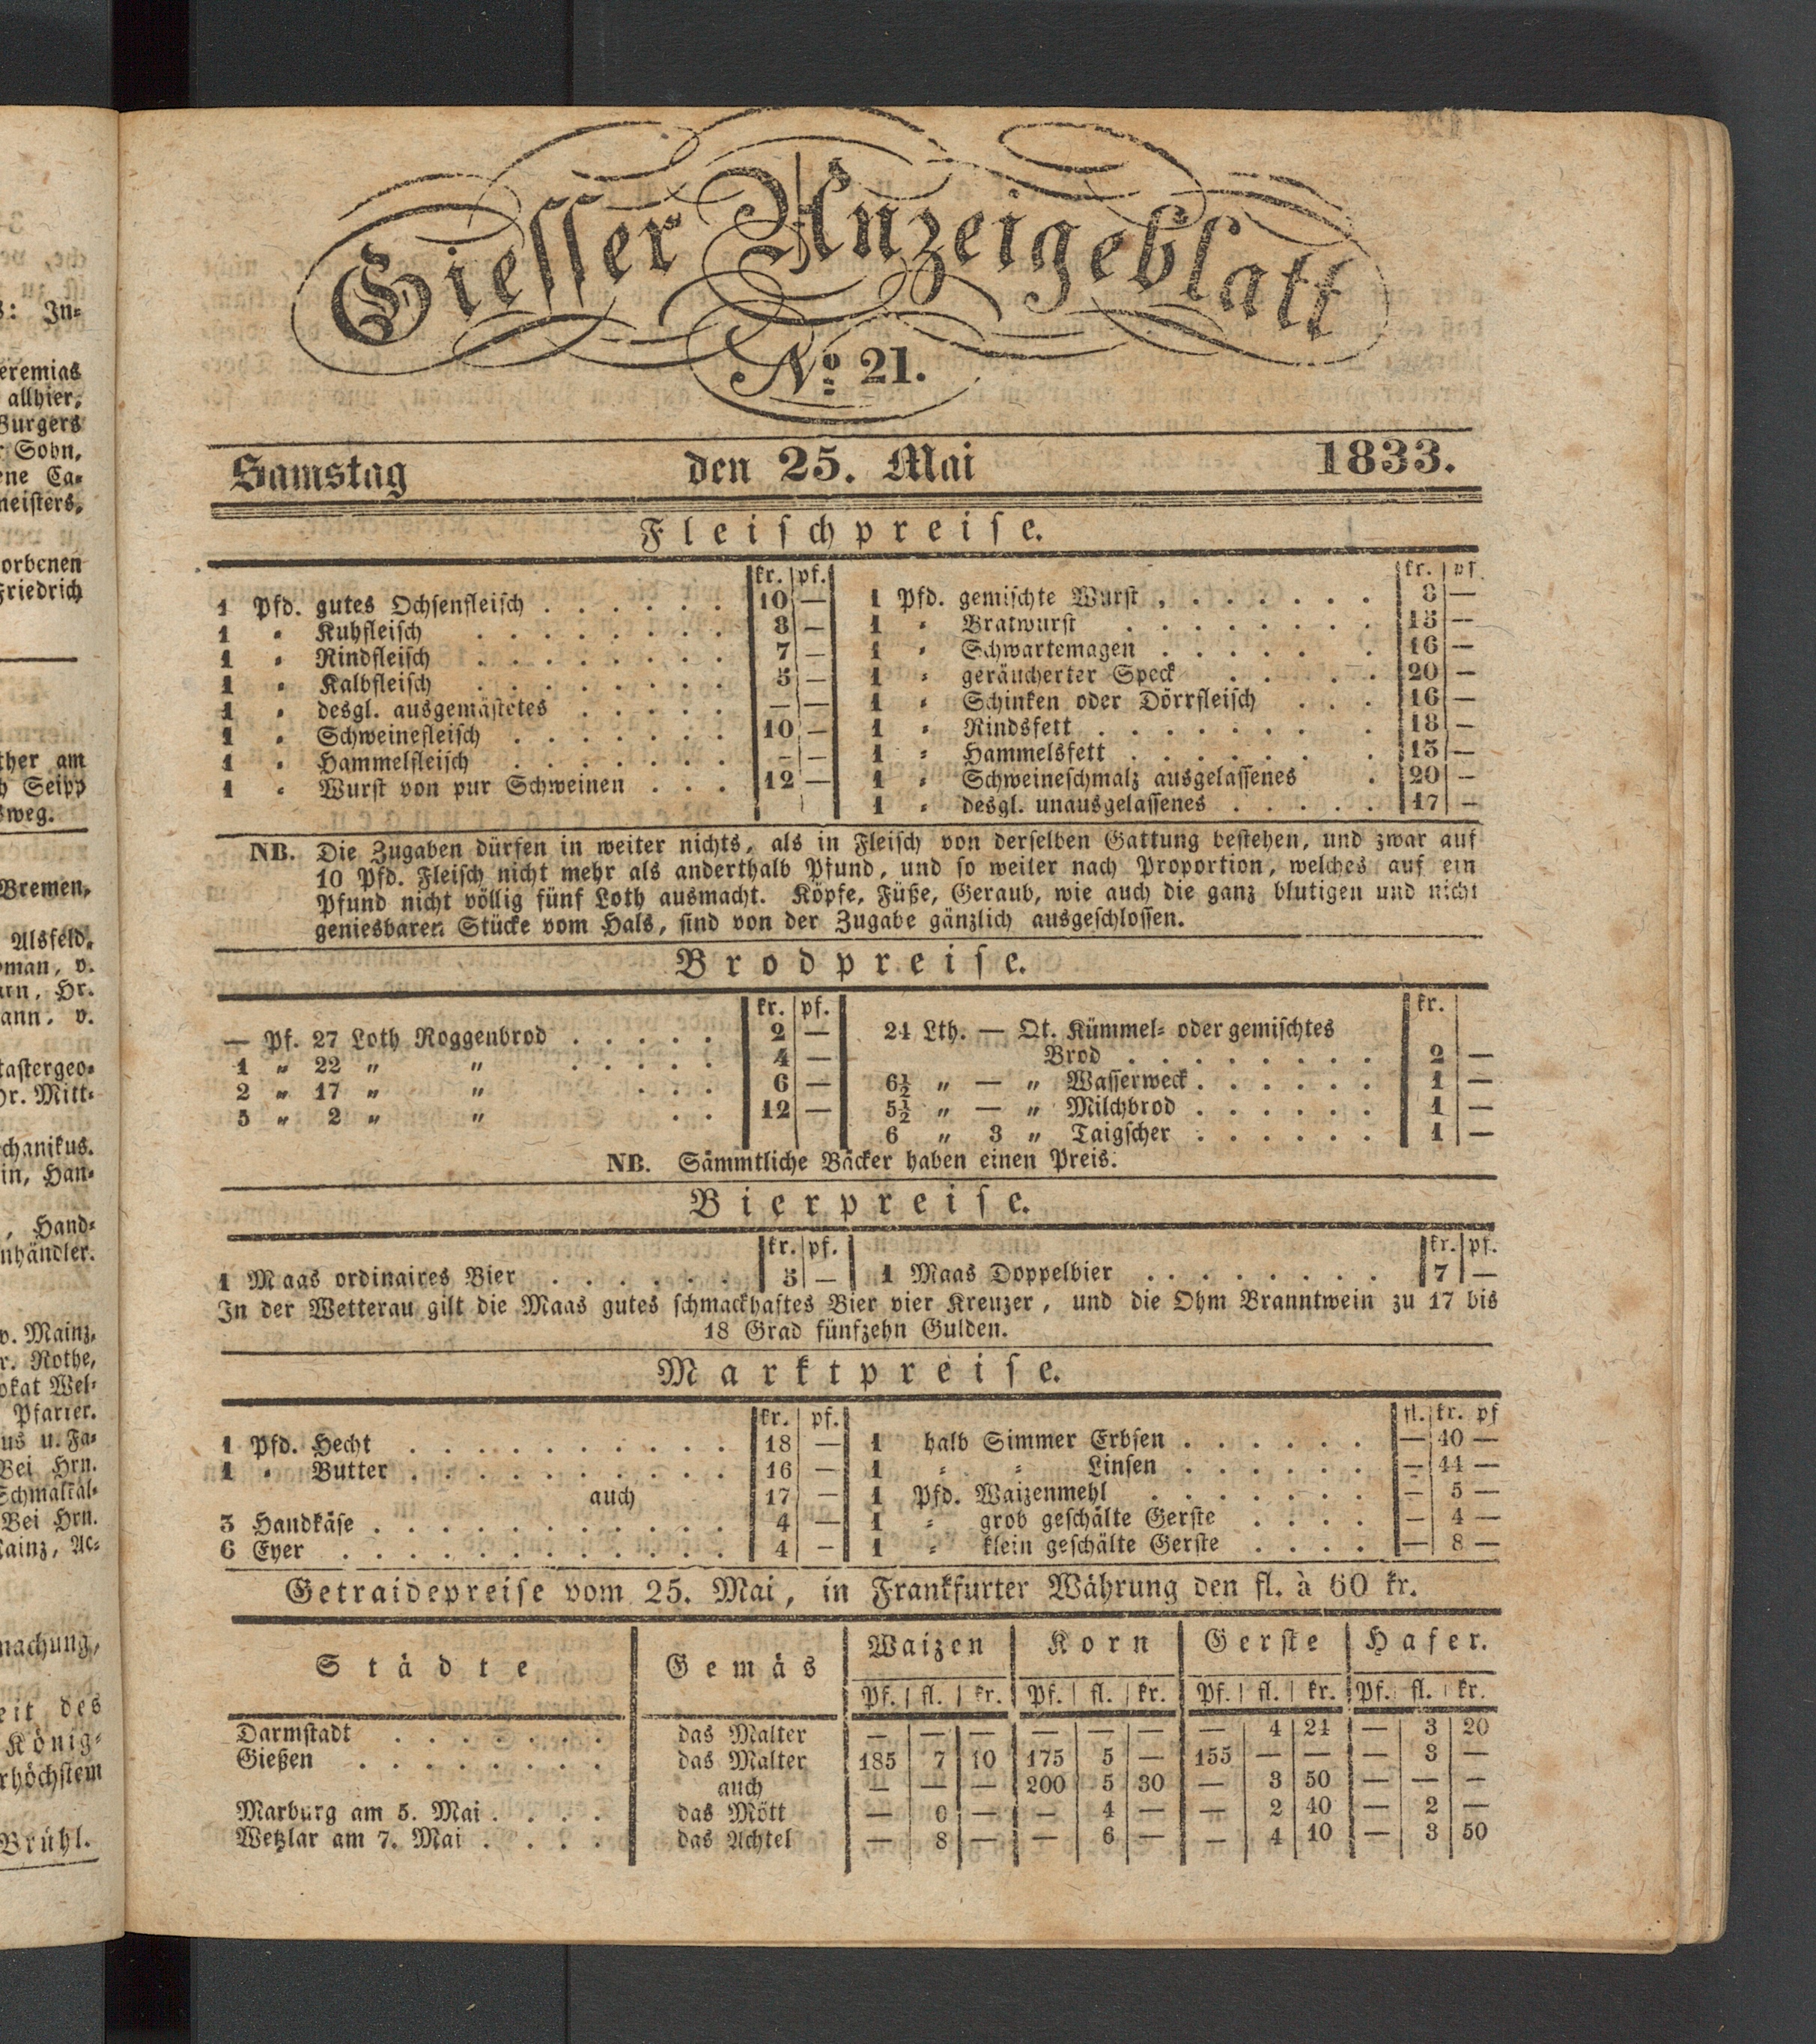 Giesser Anzeigeblatt
No. 21.
Samstag den 25. Mai 1833.
Fleischpreise.
kr. pf.
1 Pfd. gutes Ochsenfleisch . . . . . . 10 —
1 " Kuhfleisch . . . . . . . . 8 —
1 " Rindfleisch . . . . . . . . 7 —
1 " Kalbfleisch . . . . . . . . 5 —
1 " desgl. ausgemästetes . . . . . — —
1 " Schweinefleisch . . . . . . . 10 —
1 " Hammelfleisch . . . . . . . — —
1 " Wurst von pur Schweinen . . . 12 —
kr. pf
1 Pfd. gemischte Wurst . . . . . . . 8 —
1 " Bratwurst . . . . . . . . 15 —
1 " Schwartemagen . . . . . . 16 —
1 " geräucherter Speck . . . . . 20 —
1 " Schinken oder Dörrfleisch . . . 16 —
1 " Rindsfett . . . . . . . . 18 —
1 " Hammelsfett . . . . . . . 15 —
1 " Schweineschmalz ausgelassenes . 20 —
1 " desgl. unausgelassenes . . . . . 17 —
NB. Die Zugaben dürfen in weiter nichts, als in Fleisch von derselben Gattung bestehen, und zwar auf
10 Pfd. Fleisch nicht mehr als anderthalb Pfund, und so weiter nach Proportion, welches auf ein
Pfund nicht völlig fünf Loth ausmacht. Köpfe, Füße, Geraub, wie auch die ganz blutigen und nicht
geniesbaren Stücke vom Hals, sind von der Zugabe gänzlich ausgeschlossen.
Brodpreise.
kr. pf.
— Pf. 27 Loth Roggenbrod . . . . . 2 —
1 " 22 " " . . . . . 4 —
2 " 17 " " . . . 6 —
5 " 2 " " . . 12 —
kr.
24 Lth. — Qt. Kümmel- oder gemischtes
Brod . . . . . . . . 2 —
6½ " — " Wasserweck . . . . . . 1 —
5½ " — " Milchbrod . . . . . . 1 —
6 " 3 " Taigscher . . . . . . 1 —
NB. Sämmtliche Bäcker haben einen Preis.
Bierpreise.
kr. pf. kr. pf.
1 Maas ordinaires Bier . . . . . . 5 — 1 Maas Doppelbier . . . . . . . . 7 —
In der Wetterau gilt die Maas gutes schmackhaftes Bier vier Kreuzer, und die Ohm Branntwein zu 17 bis
18 Grad fünfzehn Gulden.
Marktpreise.
kr. pf.
1 Pfd. Hecht . . . . . . . . . . 18 —
1 " Butter . . . . . . . . . . 16 —
auch 17 —
5 Handkäse . . . . . . . . . . . 4 —
6 Eyer . . . . . . . . . . . . 4 —
fl. kr. pf
1 halb Simmer Erbsen . . . . . . — 40 —
1 " " Linsen . . . . . . — 44 —
1 Pfd. Waizenmehl . . . . . . . — 5 —
1 " grob geschälte Gerste . . . . — 4 —
1 " klein geschälte Gerste . . . . — 8 —
Getraidepreise vom 25. Mai, in Frankfurter Währung den fl. à 60 kr.
Städte Gemäs Waizen Korn Gerste Hafer.
Pf. fl. kr. Pf. fl. kr. Pf. fl. kr. Pf. fl. kr.
Darmstadt . . . . . . . das Malter — — — — — — — 4 24 — 3 20
Gießen . . . . . . . . das Malter 185 7 10 175 5 — 155 — — — 3 —
auch — — — 200 5 30 — 3 50 — — —
Marburg am 5. Mai . . . . das Mött — 6 — — 4 — — 2 40 — 2 —
Wetzlar am 7. Mai . . . . das Achtel — 8 — — 6 — — 4 10 — 3 50